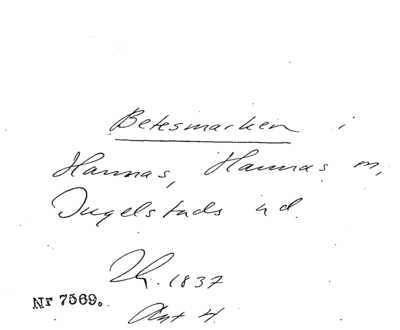 Betesmarken i
Hannas, Hannas m,
Ingelstads hd.
Th. 1837
Nr 7569.
Akt 4.